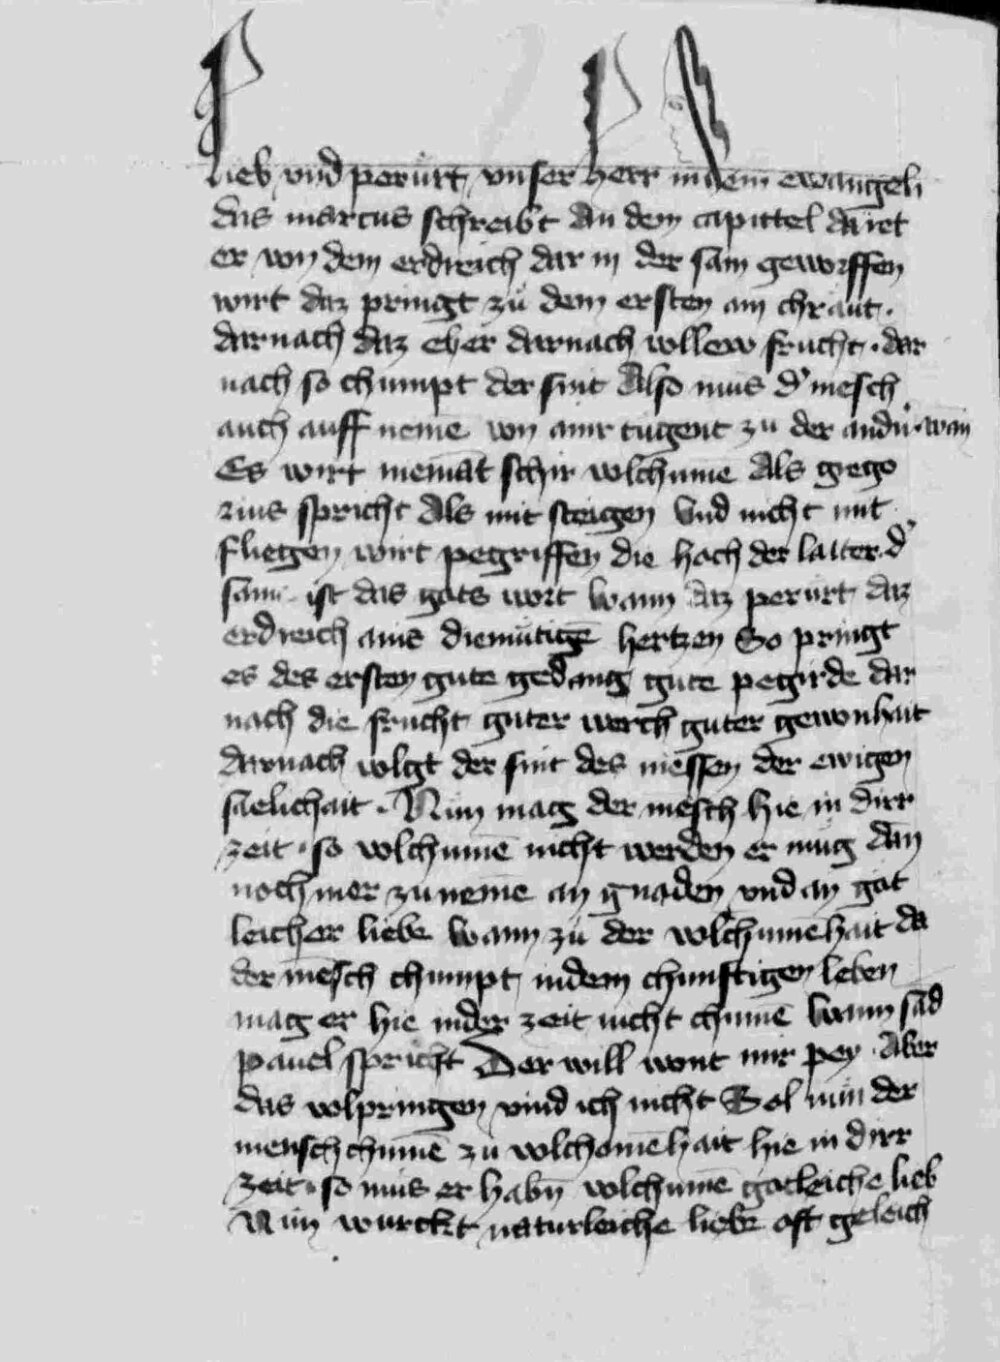 Lieb vnd perürt vnser herr in dem ewangeli
das marcus schreibt An dem capittel da ret
er von dem erdreich dar in der sam geworffen
wirt daz pringt zu dem ersten ain chraut .
darnach daz eher darnach vollew frucht . dar
nach so chumpt der snit Also mus d' mēsch
auch auff nemē von ainr tugent zu der andn̄ . wan̄
Es wirt niemāt schir volchumē Als grego
rius spricht Als mit steigen Vnd nicht mit
fliegen wirt pegriffen die hoch der laitter . d'
sam ist das gots wort wann daz perürt daz
erdreich ains diemütigē hertzen So pringt
es des ersten gute gedang gute pegirde dar
nach die frucht guter werch guter gewonhait
darnach volgt der snit des messen der ewigen
saelichait . Nun mag der mēsch hie in dirr
zeit . so volchumē nicht werden er mug dān
noch mer zu nemē an gnaden vnd an göt
leicher liebe wann zu der volchumēhait da
der mēsch chumpt in dem chunftigen leben
mag er hie in der zeit nicht chumē wann sād
pauel spricht Der will wont mir pey . Aber
das volpringen vind ich nicht Sol nun der
mensch chumē zu volchomēhait hie in dirr
zeit . so mus er habn̄ volchumē gotleiche lieb
Nun würckt naturleiche liebe oft geleich